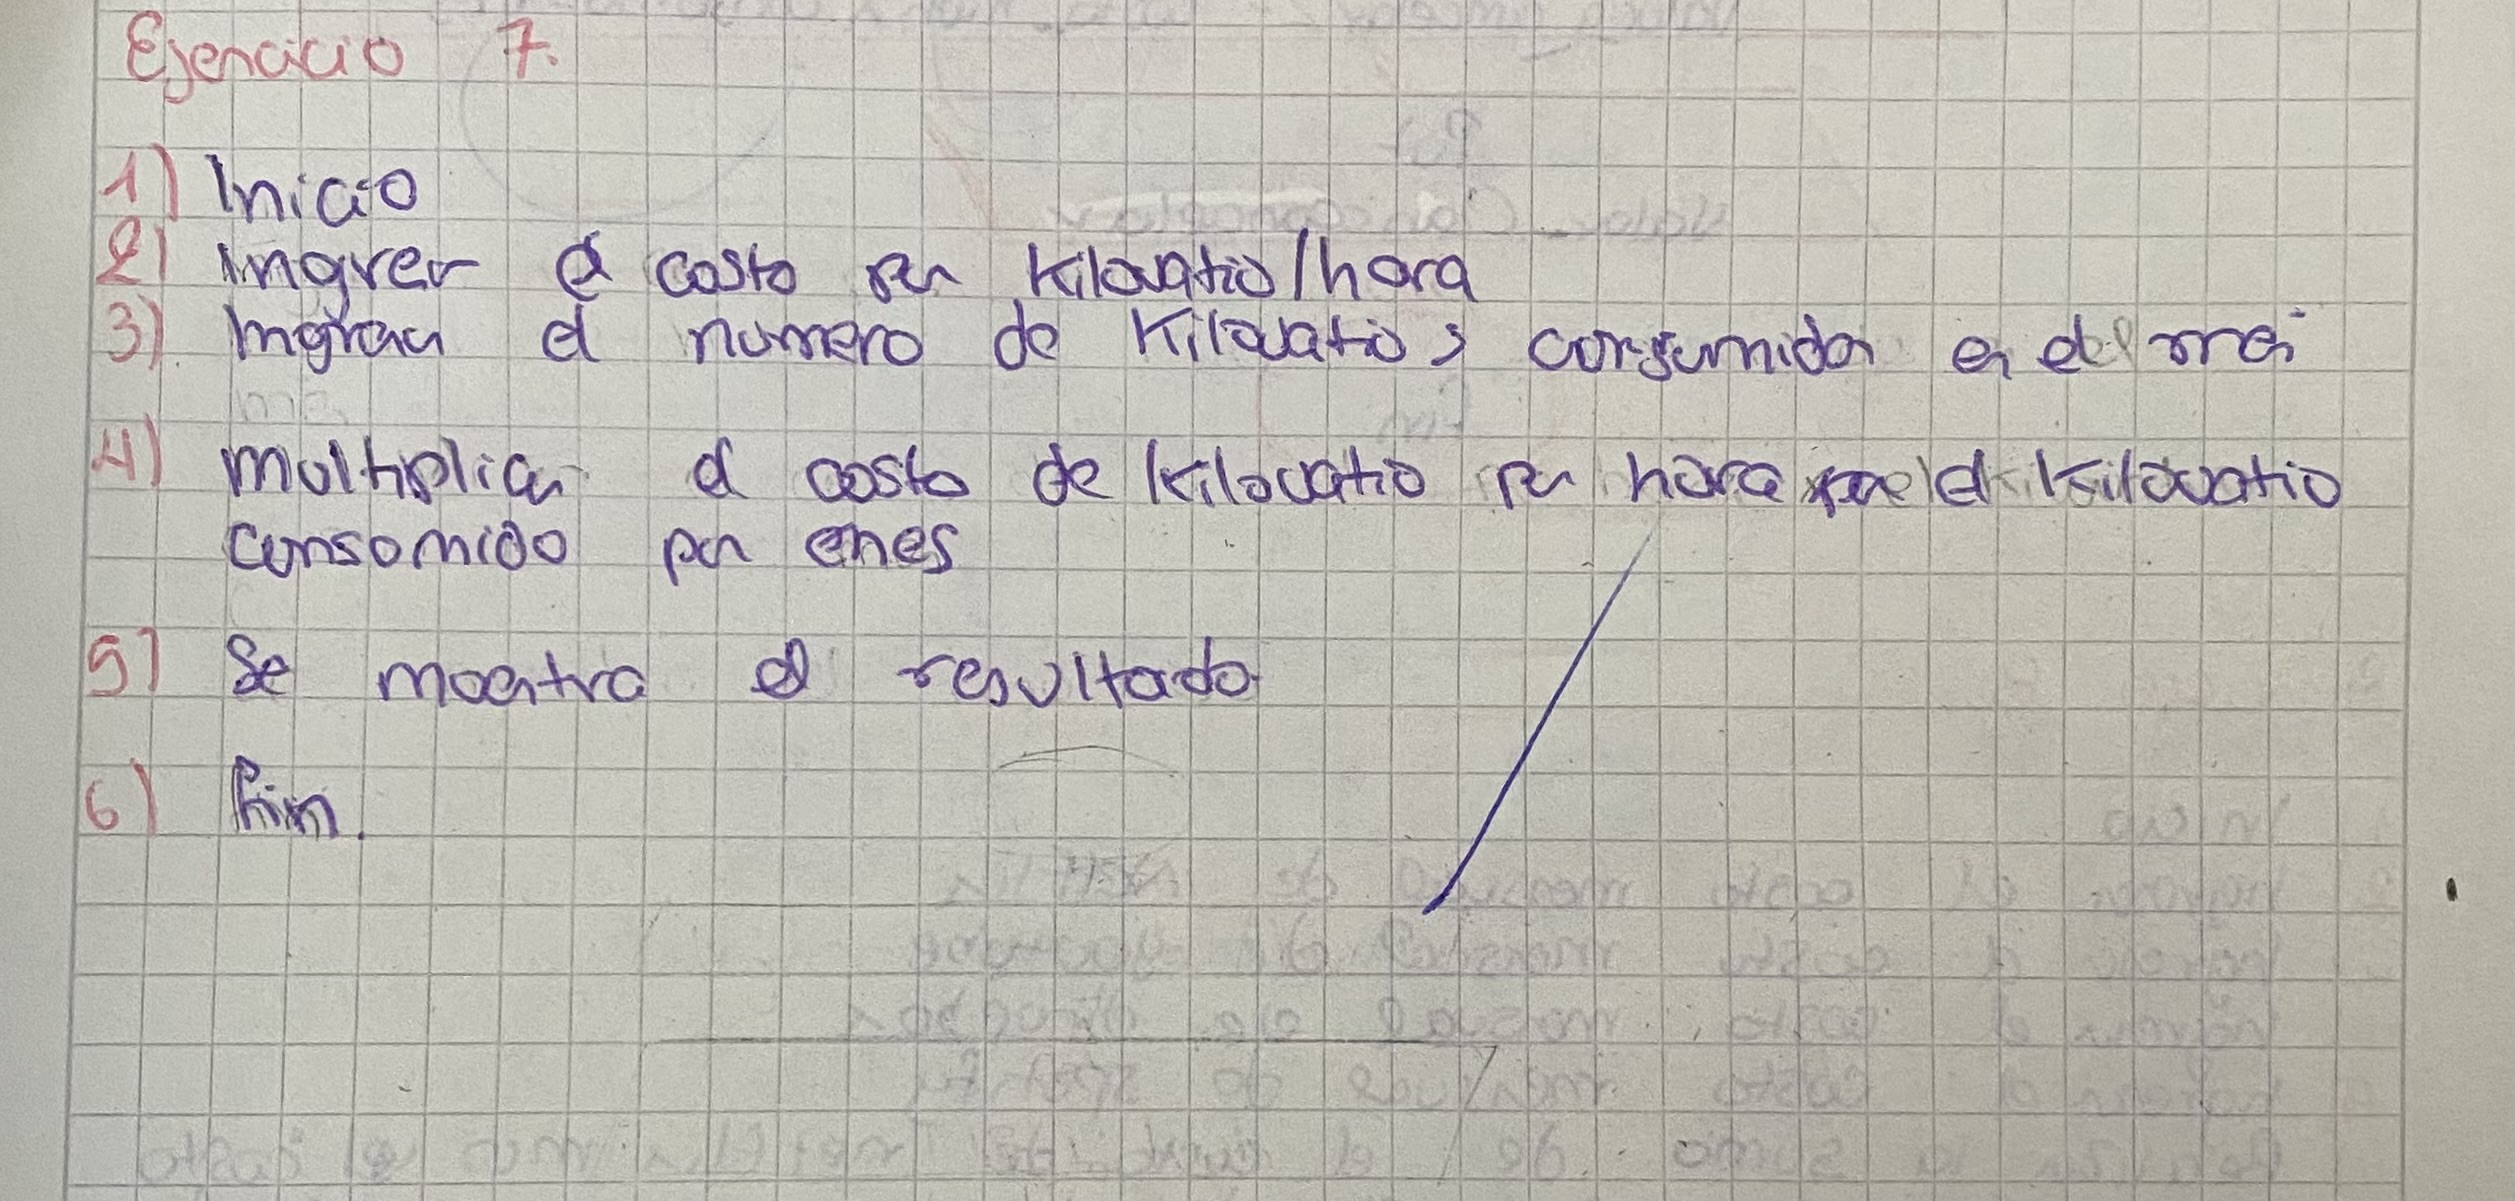 Ejercicio 7.
1) Inicio
2) Ingresar el costo por Kilovatio/hora
3) Ingresar el numero de Kilovatios consumidos en el mes
4) multiplicar el costo de kilovatio por hora el kilovatio
consumido por mes
5) Se muestra el resultado
6) fin.